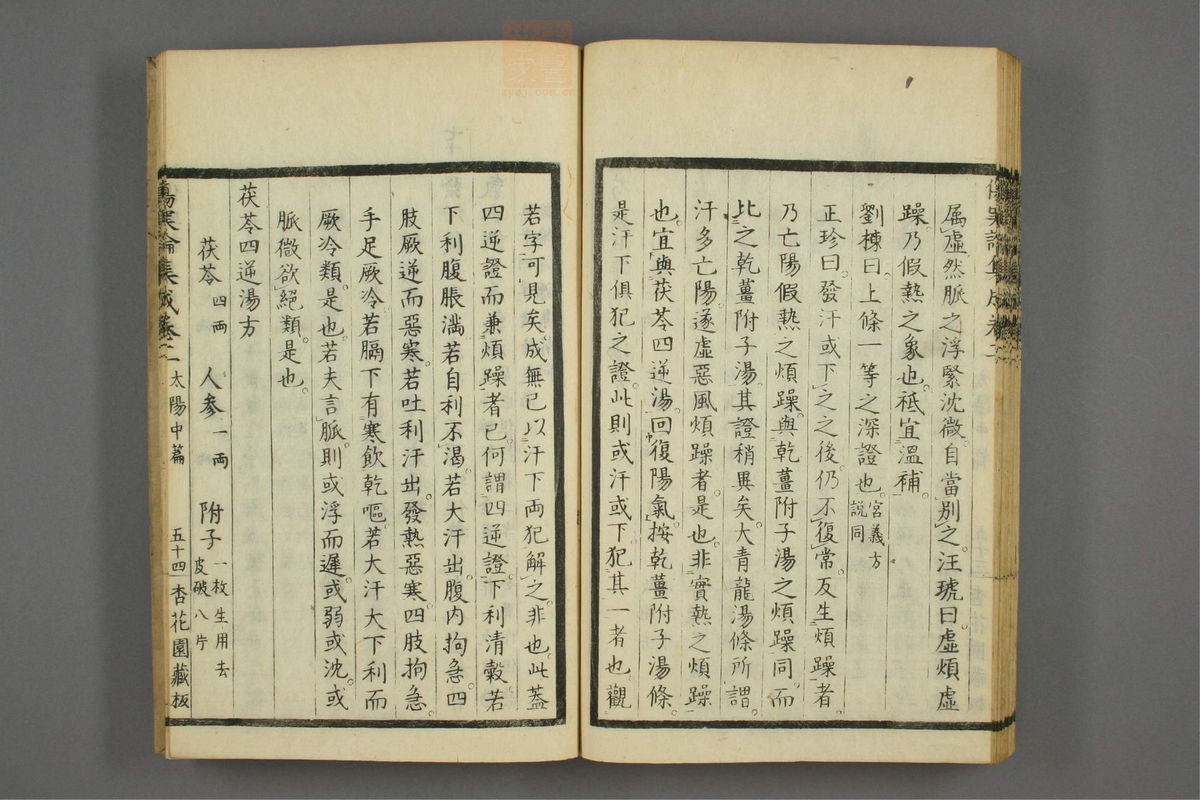 属虛然脈之浮緊沈微自當別之汪琥曰虛煩虛
躁乃假熱之象也祗宜溫補
劉棟曰上條一等之深證也宮義方說同
正珍曰發汗或下之之後仍不復常反生煩躁者
乃亡陽假熱之煩躁與乾薑附子湯之煩躁同而
比之乾薑附子湯其證稍異矣大青龍湯條所謂
汗多亡陽遂虛惡風煩躁者是也非實熱之煩躁
也宜與茯苓四逆湯回復陽氣按乾薑附子湯條
是汗下俱犯之證此則或汗或下犯其一者也觀
若字可見矣成無已以汗下兩犯解之非也此蓋
四逆證而兼煩躁者已何謂四逆證下利清穀若
下利腹脹滿若自利不渴若大汗出腹內拘急四
肢厥逆而惡寒若吐利汗出發熱惡寒四肢拘急
手足厥冷若膈下有寒飲乾嘔若大汗大下利而
厥冷類是也若夫言脈則或浮而遲或弱或沈或
脈微欲絕類是也
茯苓四逆湯方
茯苓四兩 人參一兩 附子一枚生用去皮破八片
傷寒論集成卷二 太陽中篇 五十四 杏花園藏板